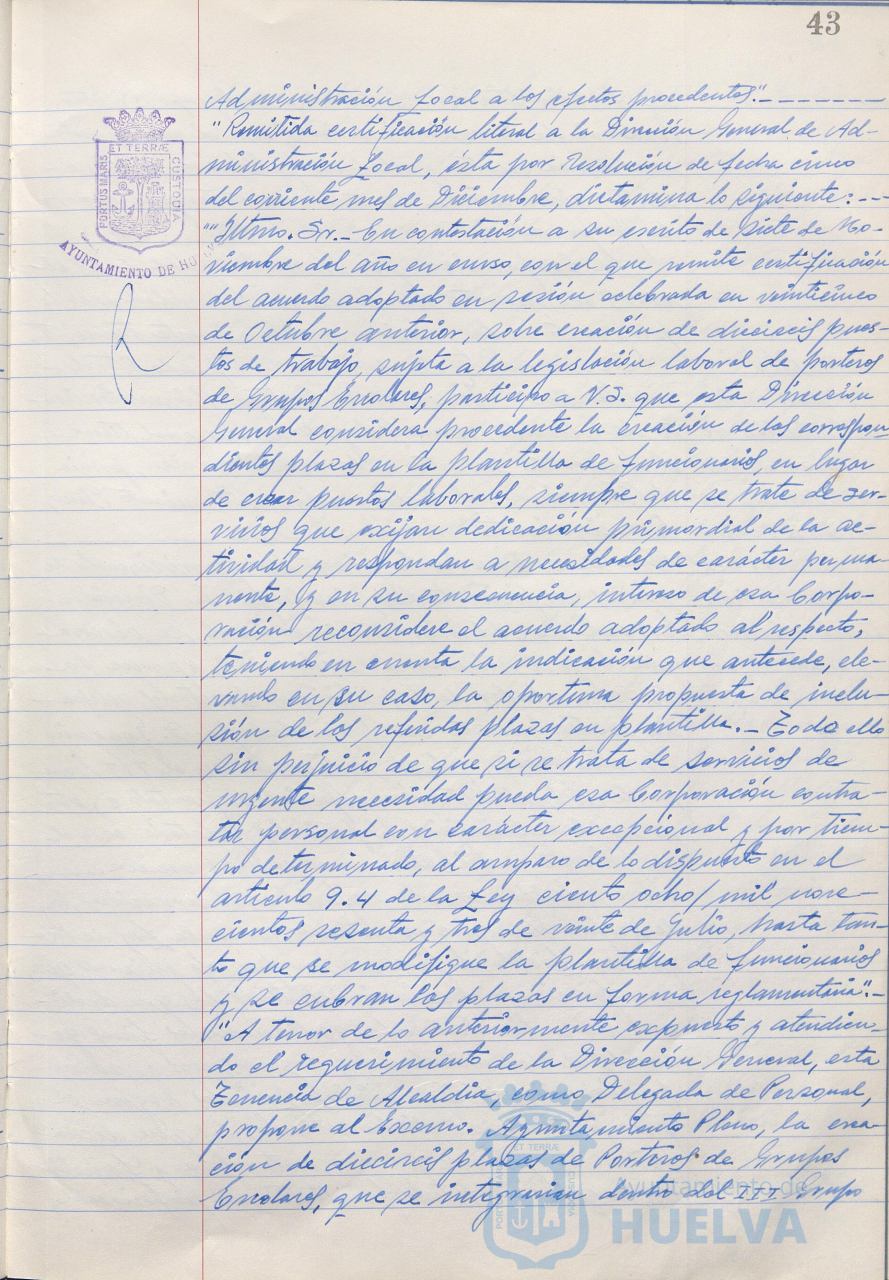 43
Administración Local a los efectos procedentes".-------
"Remitida certificación literal a la Dirección General de Ad-
ministración Local, ésta por Resolución de fecha cinco
del corriente mes de Diciembre, dictamina lo siguiente:---
""Iltmo. Sr.- En contestación a su escrito de siete de No-
viembre del año en curso, con el que remite certificación
del acuerdo adoptado en sesión celebrada en veinticinco
de Octubre anterior, sobre creación de dieciseis pues-
tos de trabajo, sujeta a la legislación laboral de porteros
de Grupos Escolares, participo a V.S. que esta Dirección
General considera procedente la creación de las correspon
dientes plazas en la plantilla de funcionarios, en lugar
de crear puestos laborales, siempre que se trate de ser-
vicios que exijan dedicación primordial de la ac-
tividad y respondan a necesidades de carácter perma-
nente, y en su consecuencia, intereso de esa Corpo-
ración reconsidere el acuerdo adoptado al respecto,
teniendo en cuenta la indicación que antecede, ele-
vando en su caso, la oportuna propuesta de inclu-
sión de las referidas plazas en plantilla.- Todo ello
sin perjuicio de que si se trata de servicios de
urgente necesidad pueda esa Corporación contra-
tar personal con carácter excepcional y por tiem-
po determinado, al amparo de lo dispuesto en el
artículo 9.4 de la Ley ciento ocho/mil nove-
cientos sesenta y tres de veinte de Julio, hasta tan-
to que se modifique la plantilla de funcionarios
y se cubran las plazas en forma reglamentaria".-
"A tenor de lo anteriormente expuesto y atendien-
do el requerimiento de la Dirección General, esta
Tenencia de Alcaldía, como Delegada de Personal,
propone al Excmo. Ayuntamiento Pleno, la crea-
ción de dieciseis plazas de Porteros de Grupos
Escolares, que se integrarían dentro del III Grupo
PORTUS MARIS
ET TERRÆ
CUSTODIA
AYUNTAMIENTO DE HU
Ayuntamiento de
HUELVA